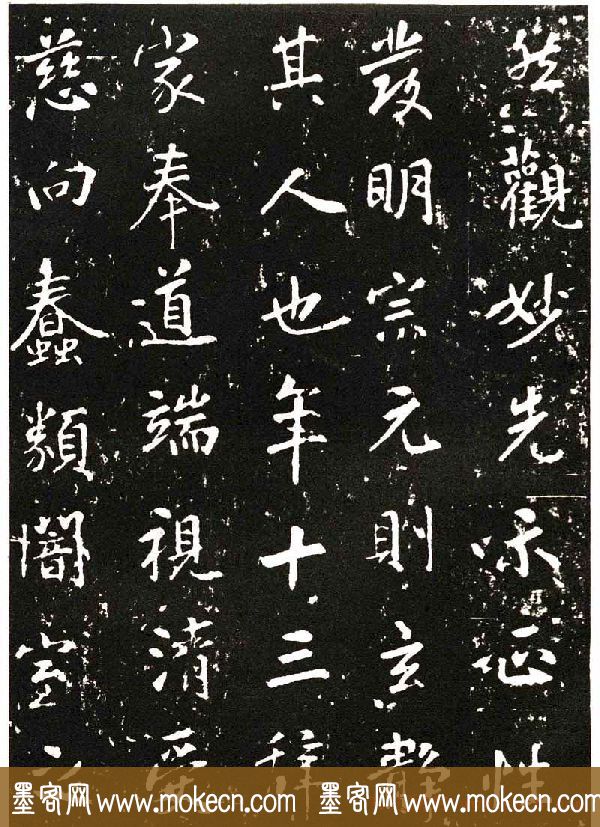 然觀妙先性
發明宗元則玄靜
其人也年十三辭
家奉道端視清
慈向蠢類室
墨客网 www.mokecn.com 墨客网 www.mokecn.com